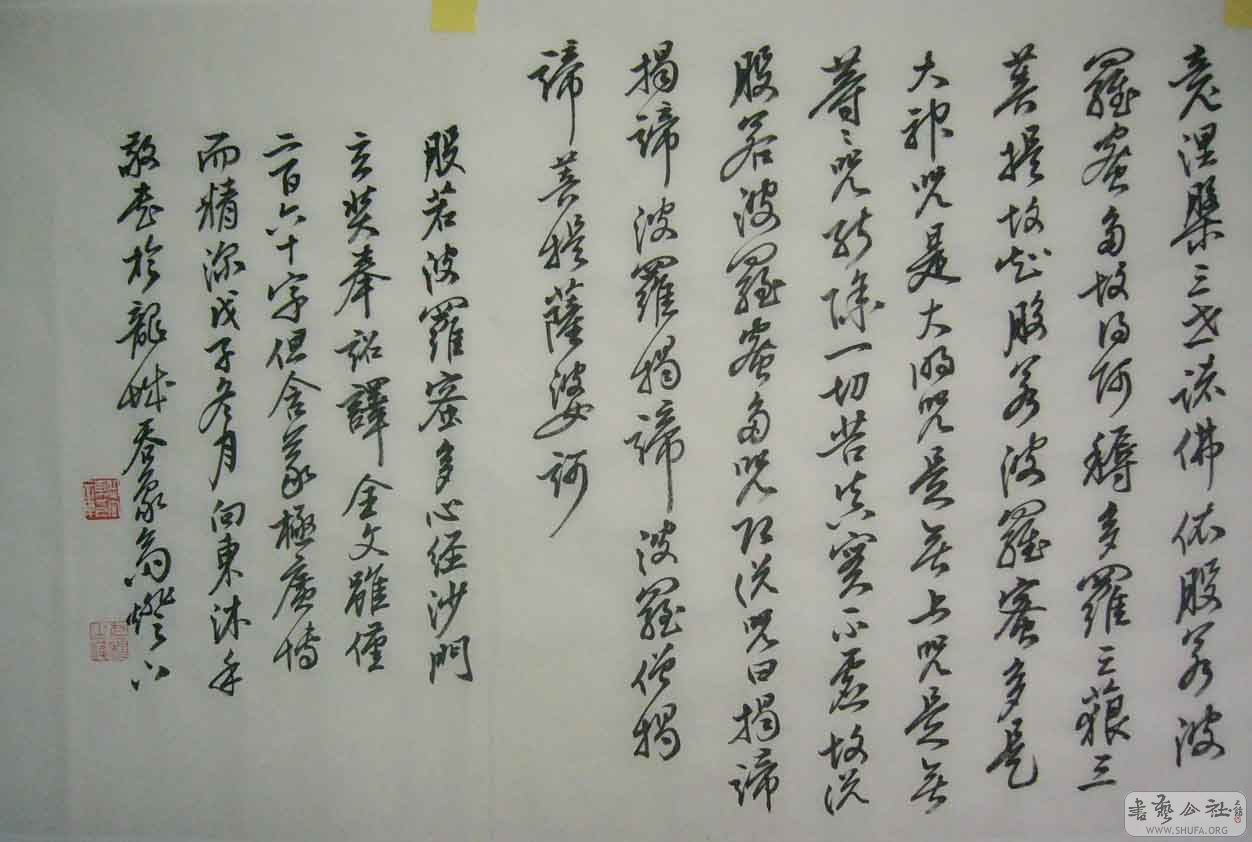 竟涅槃三世諸佛依般若波
羅蜜多故得阿耨多羅三藐三
菩提故知般若波羅蜜多是
大神咒是大明咒是無上咒是無
等〻咒能除一切苦真實不虛故說
般若波羅蜜多咒即說咒曰揭諦
揭諦波羅揭諦波羅僧揭
諦菩提薩婆訶
般若波羅蜜多心経沙門
玄奘奉詔譯全文雖僅
二百六十字但含義極廣博
而精深戊子冬月向東沐手
敬書於龍城吞象齋燈下
書藝公社
WWW.SHUFA.ORG